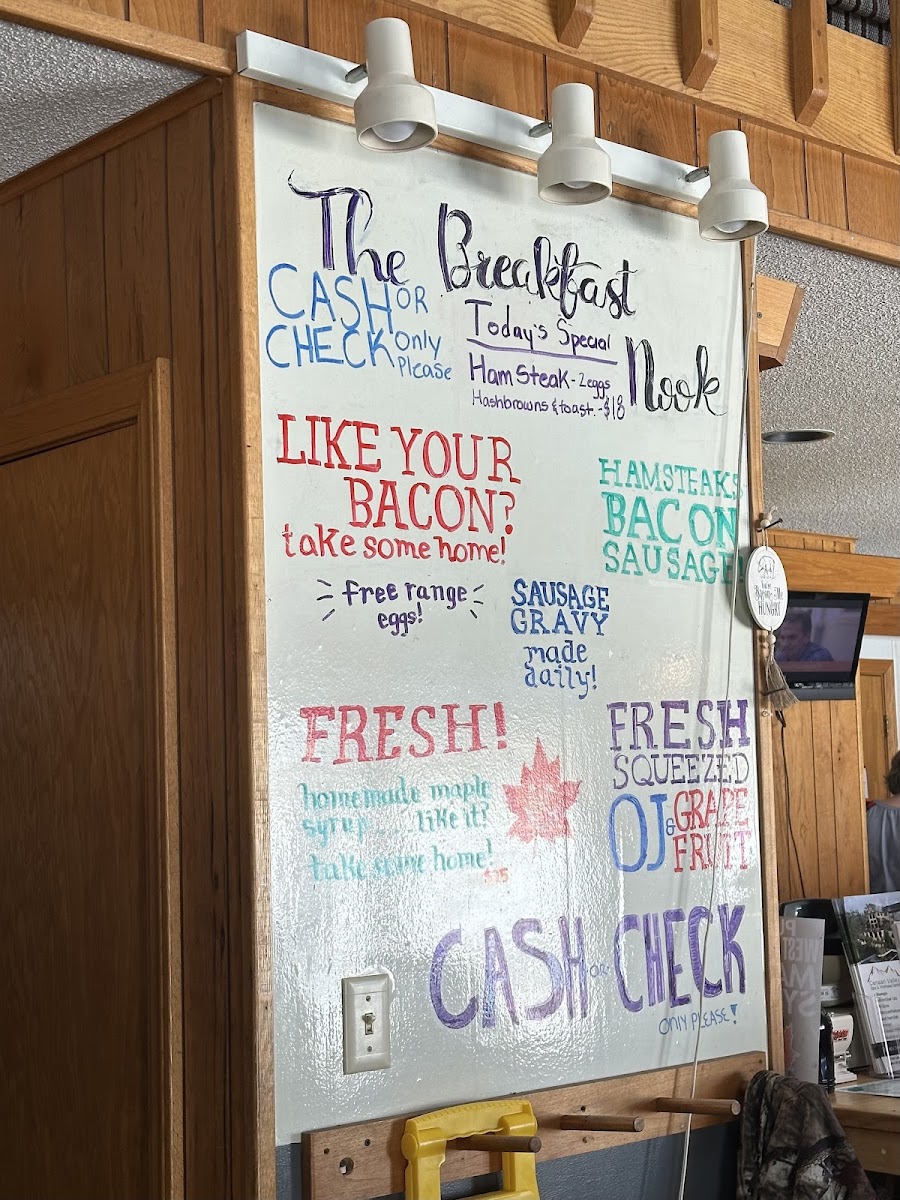 The Breakfast
Nook
CASH OR
CHECK only
please
Today's Special
Ham Steak - 2 eggs
Hashbrowns & toast - $18
LIKE YOUR
BACON?
take some home!
HAMSTEAKS
BACON
SAUSAGE
free range
eggs!
SAUSAGE
GRAVY
made
daily!
FRESH!
homemade maple
syrup ..... like it?
take some home!
$25
FRESH
SQUEEZED
OJ & GRAPE
FRUIT
CASH OR CHECK
ONLY PLEASE!
HUNGRY